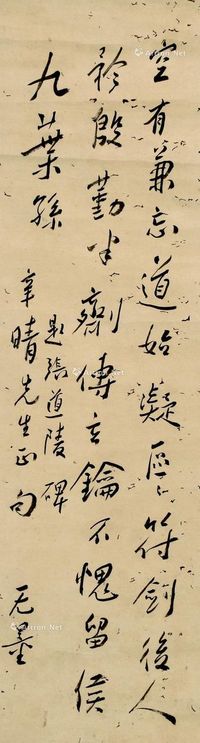 空有兼忘道始凝區區符劍後人
矜殷勤劑傳玄鑰不愧留侯
九葉孫
題張道陵碑
晴先生正句
无量
Artron.Net